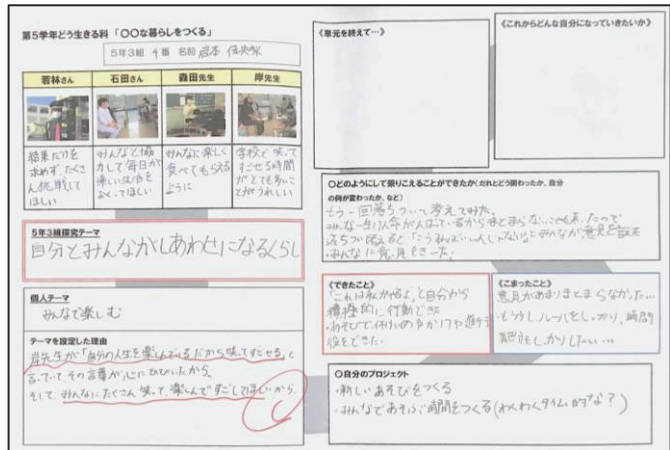 第5学年どう生きる科 「〇〇な暮らしをつくる」
5年3組 4番 名前 岩本
若林さん
石田さん
森田先生
岸先生
結果だけを
求めず、たくさ
ん挑戦して
ほしい
みんなと協
力して毎日が
楽しい生活を
おくってほしい
みんなに楽しく
食べてもらえる
ように
学校で笑って
すごせる時間
がとても多いこ
とがうれしい
5年3組探究テーマ
自分とみんながしあわせになるくらし
個人テーマ
みんなで楽しむ
テーマを設定した理由
岸先生が「自分の人生を楽しんでいるだから笑ってすごせる」と
言っていて、その言葉が心にひびいたから。
そして、みんなにたくさん笑って、楽しんですごしてほしいから。
《単元を終えて…》
《これからどんな自分になっていきたいか》
〇どのようにして乗りこえることができたか(だれとどう関わったか、自分
の何が変わったか、など)
もう一回落ちついて考えてみた。
みんな一生けん命がんばっているからまとまらない
落ちついて「こうすればいいんじゃない」とみんなが意見を
・みんなに意見をきいた。
《できたこと》
「これは私がやるよ」と自分から
積極的に行動できた
・あそびで
役をできた。
《こまったこと》
意見があまりまとまらなかった…
・もう少しルールをしっかり、時間
しっかりしたい…
〇自分のプロジェクト
・新しいあそびをつくる
・みんなであそぶ時間をつくる(わくわくタイム的な?)